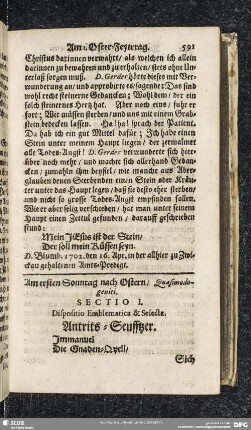 Am 1. Oster-Feyertag. 591
Christus darinnen verwahrt/ als welchen ich allein
darinnen zu bewahren und zu erhalten/ stets ohne Un-
terlaß sorgen muß. D. Gerder hörte dieses mit Ver-
wunderung an/ und approbirte es/sagende: Das sind
wohl recht steinerne Gedancken; Wohl dem/ der ein
solch steinernes Hertz hat. Aber noch eins/ fuhr er
fort: Wir müssen sterben/ und uns mit einem Grab-
stein bedecken lassen. Ha! ha! sprach der Patient,
Da hab ich ein gut Mittel dafür; Ich habe einen
Stein unter meinem Haupt liegen/ der verwahret
alle Todes-Angst! D. Gerder verwunderte sich hier-
über noch mehr/ und machte sich allerhand Gedan-
cken/ zumahln ihm beyfiel/ wie manche aus Aber-
glauben denen Sterbenden einen Stein oder Kräu-
ter unter das Haupt legen/ daß sie desto eher sterben/
und nicht so grosse Todes-Angst empfinden sollen.
Wie er aber selig verschieden/ hat man unter seinem
Haupt einen Zettul gefunden/ darauff geschrieben
stund:
Mein JEsus ist der Stein/
Der soll mein Küssen seyn.
D. Blumb. 1702. den 16. Apr. in der allhier zu Zwi-
ckau gehaltenen Ambts-Predigt.
Am ersten Sonntag nach Ostern/ Quasimodo-
geniti.
SECTIO I.
Dispositio Emblematica & Selecta.
Antritts-Seufftzer.
Immanuel
Die Gnaden-Qvell/
Sich
SLUB